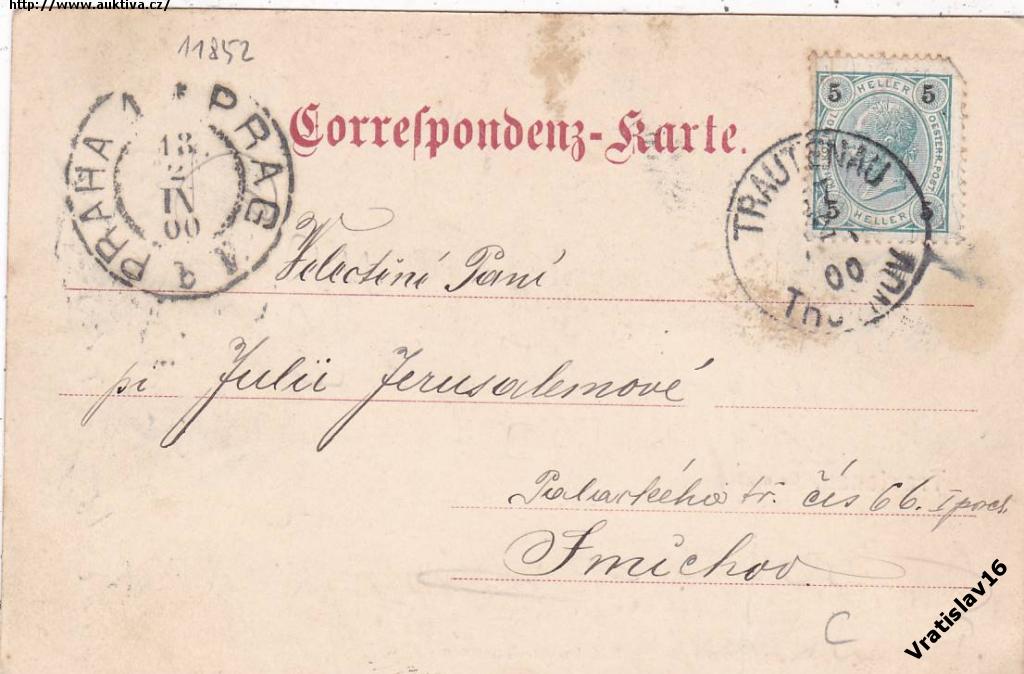 http://www.auktiva.cz/
11852
Correspondenz-Karte.
5 HELLER 5
OESTERR. POST
5 HELLER 5
PRAHA PRAG
18
2
IV
00
TRAUTENAU
00
Velectění Paní
pí Julii Jerusalemové
Palackého tř. čís 66. I poch.
Smíchov
C
Vratislav16